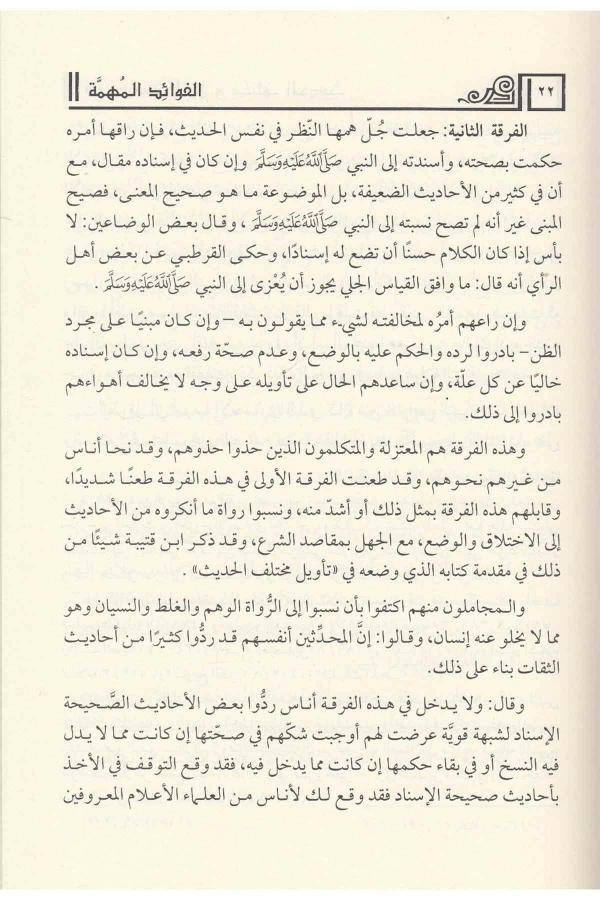 ٢٢ الفوائد المُهمَّة
الفرقة الثانية: جعلت جُلّ همها النّظر في نفس الحديث، فإن راقها أمره
حكمت بصحته، وأسندته إلى النبي صَلَّى اللَّهُ عَلَيْهِ وَسَلَّمَ وإن كان في إسناده مقال، مع
أن في كثير من الأحاديث الضعيفة، بل الموضوعة ما هو صحيح المعنى، فصيح
المبنى غير أنه لم تصح نسبته إلى النبي صَلَّى اللَّهُ عَلَيْهِ وَسَلَّمَ، وقال بعض الوضاعين: لا
بأس إذا كان الكلام حسنًا أن تضع له إسنادًا، وحكى القرطبي عن بعض أهل
الرأي أنه قال: ما وافق القياس الجلي يجوز أن يُعْزى إلى النبي صَلَّى اللَّهُ عَلَيْهِ وَسَلَّمَ .
وإن راعهم أمرُه لمخالفته لشيء مما يقولون به – وإن كان مبنيًا على مجرد
الظن– بادروا لرده والحكم عليه بالوضع، وعدم صحّة رفعه، وإن كان إسناده
خاليًا عن كل علّة، وإن ساعدهم الحال على تأويله على وجه لا يخالف أهواءهم
بادروا إلى ذلك.
وهذه الفرقة هم المعتزلة والمتكلمون الذين حذوا حذوهم، وقد نحا أناس
من غيرهم نحوهم، وقد طعنت الفرقة الأولى في هذه الفرقة طعنًا شديدًا،
وقابلهم هذه الفرقة بمثل ذلك أو أشدّ منه، ونسبوا رواة ما أنكروه من الأحاديث
إلى الاختلاق والوضع، مع الجهل بمقاصد الشرع، وقد ذكر ابن قتيبة شيئًا من
ذلك في مقدمة كتابه الذي وضعه في «تأويل مختلف الحديث» .
والمجاملون منهم اكتفوا بأن نسبوا إلى الرُّواة الوهم والغلط والنسيان وهو
مما لا يخلو عنه إنسان، وقالوا: إنَّ المحدِّثين أنفسهم قد ردُّوا كثيرًا من أحاديث
الثقات بناء على ذلك.
وقال: ولا يدخل في هذه الفرقة أناس ردُّوا بعض الأحاديث الصَّحيحة
الإسناد لشبهة قويَّة عرضت لهم أوجبت شكّهم في صحّتها إن كانت مما لا يدل
فيه النسخ أو في بقاء حكمها إن كانت مما يدخل فيه، فقد وقع التوقف في الأخذ
بأحاديث صحيحة الإسناد فقد وقع لك لأناس من العلماء الأعلام المعروفين